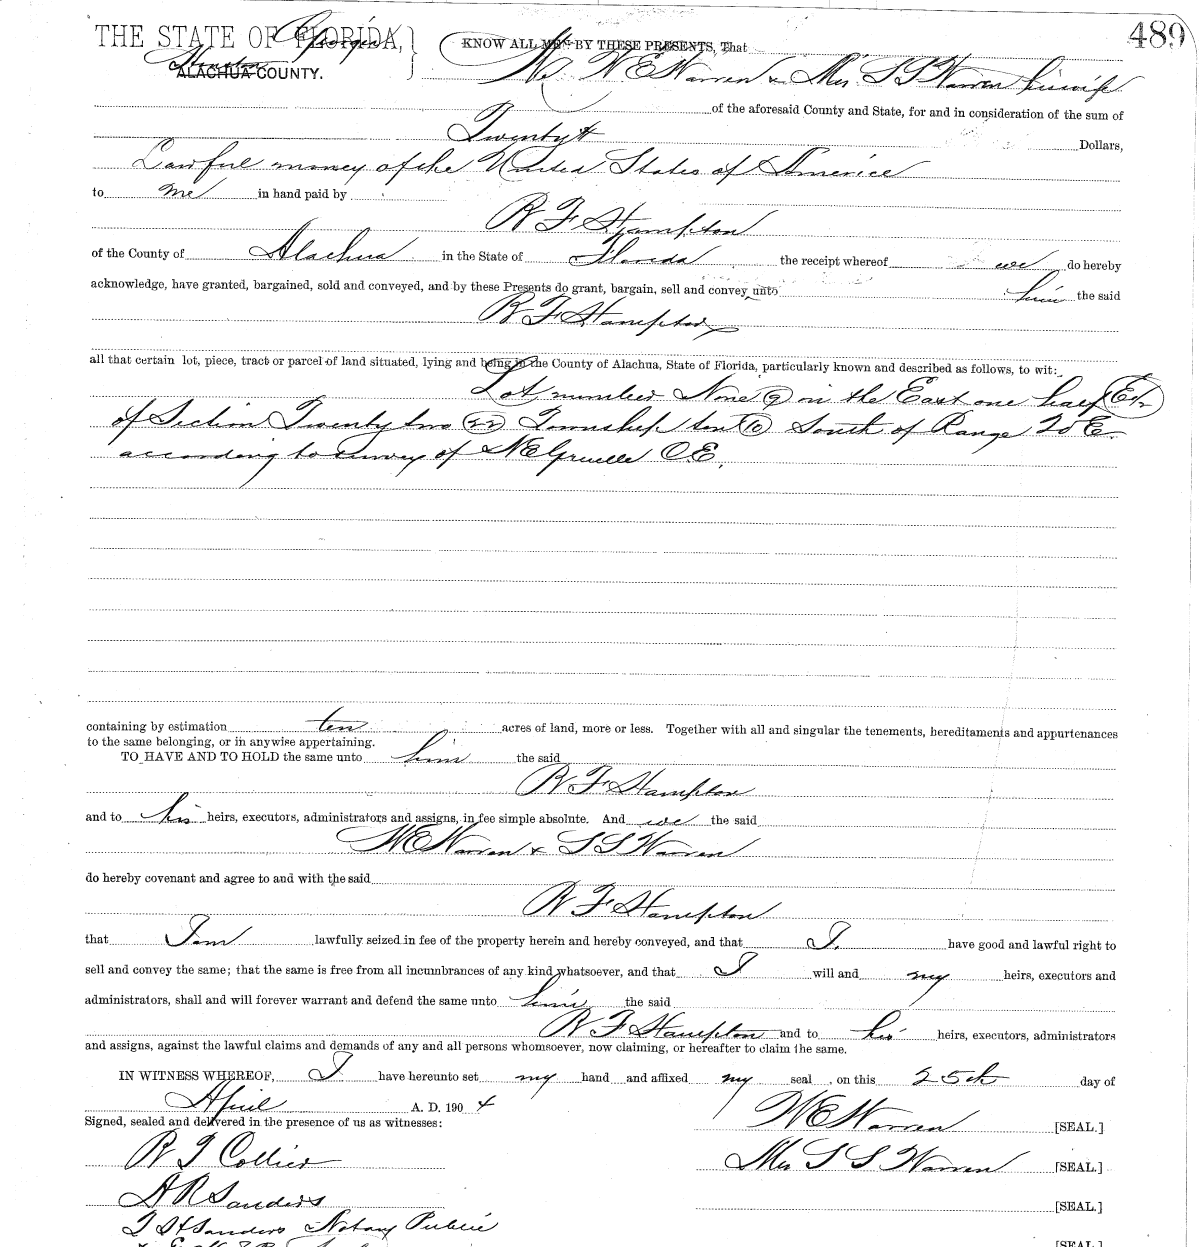 489
THE STATE OF FLORIDA, Georgia
Houston
ALACHUA COUNTY.
KNOW ALL MEN BY THESE PRESENTS, That
We W E Warren & Mrs S S Warren his wife
of the aforesaid County and State, for and in consideration of the sum of
Twenty Dollars,
Lawful money of the United States of America
to me in hand paid by
R F Hampton
of the County of Alachua in the State of Florida the receipt whereof we do hereby
acknowledge, have granted, bargained, sold and conveyed, and by these Presents do grant, bargain, sell and convey unto him the said
R F Hampton
all that certain lot, piece, tract or parcel of land situated, lying and being in the County of Alachua, State of Florida, particularly known and described as follows, to wit:
Lot number Nine (9) in the East one half (E½)
of Section Twenty two (22) Township ten (10) South of Range 20 E.
according to survey of
containing by estimation ten acres of land, more or less. Together with all and singular the tenements, hereditaments and appurtenances
to the same belonging, or in anywise appertaining.
TO HAVE AND TO HOLD the same unto him the said
R F Hampton
and to his heirs, executors, administrators and assigns, in fee simple absolute. And we the said
W E Warren & S S Warren
do hereby covenant and agree to and with the said
R F Hampton
that I am lawfully seized in fee of the property herein and hereby conveyed, and that I have good and lawful right to
sell and convey the same; that the same is free from all incumbrances of any kind whatsoever, and that I will and my heirs, executors and
administrators, shall and will forever warrant and defend the same unto him the said
R F Hampton and to his heirs, executors, administrators
and assigns, against the lawful claims and demands of any and all persons whomsoever, now claiming, or hereafter to claim the same.
IN WITNESS WHEREOF, I have hereunto set my hand and affixed my seal, on this 25th day of
April A. D. 1904
W E Warren [SEAL.]
Signed, sealed and delivered in the presence of us as witnesses:
R T Collier
Mrs S S Warren [SEAL.]
A R Sanders [SEAL.]
Sanders Notary Public
[SEAL.]